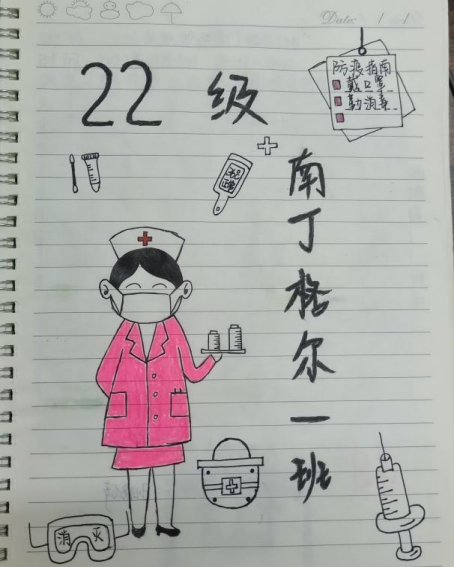 Date: / /
22 级
防疫指南
戴口罩
勤消毒
南丁格尔一班
消灭